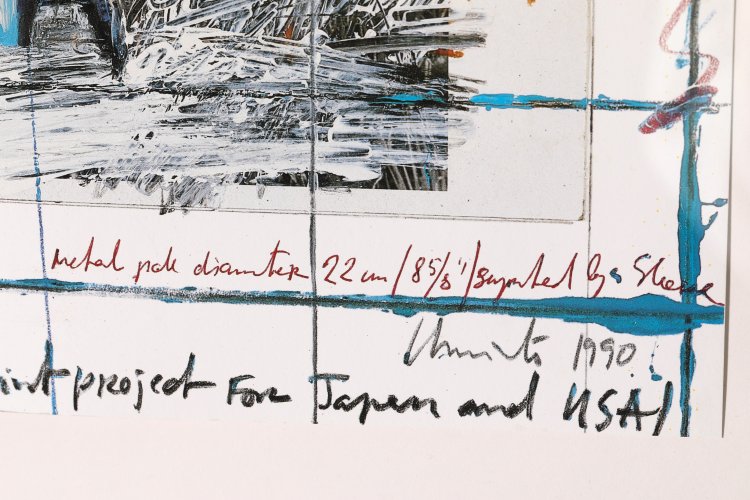 metal pole diameter 22 cm / 8 5/8"/ supported by a Sleeve
Christo 1990
joint project FOR Japan and USA/